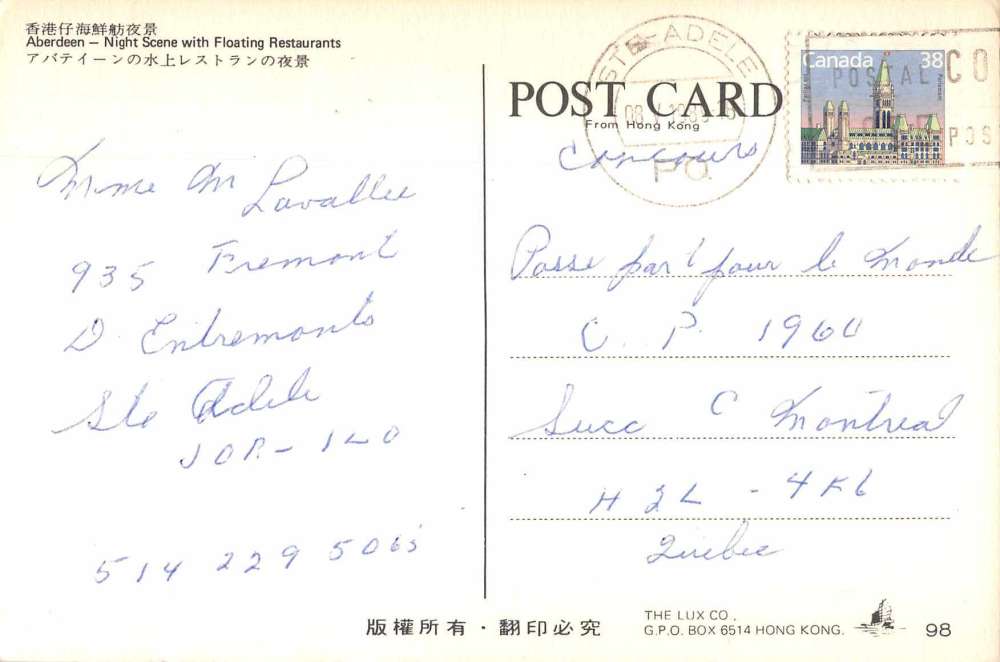 香港仔海鮮舫夜景
Aberdeen — Night Scene with Floating Restaurants
アバテイーンの水上レストランの夜景
Mme M Lavallee
935 Fremont
D. Entremonts
Ste Adele
JOR-1L0
514 229
STE-ADELE
P.O.
POST CARD
From Hong Kong
Concours
Canada 38
POSTAL CO
POS
Passe par t pour le monde
C. P. 1960
Succ C Montreal
H2L - 4K6
Quebec
版權所有·翻印必究
THE LUX CO.,
G.P.O. BOX 6514 HONG KONG.
98